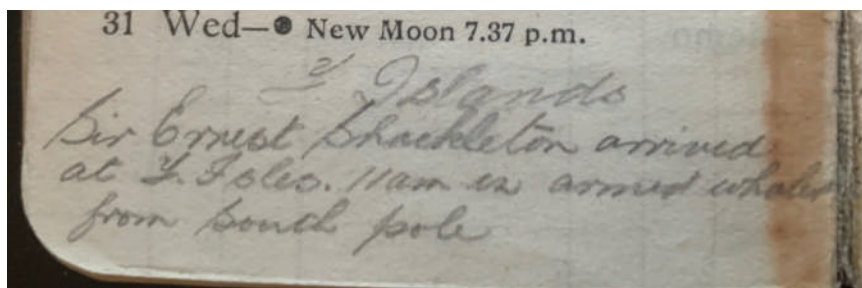 31 Wed—● New Moon 7.37 p.m.
Islands
Sir Ernest Shackleton arrived
at F. Isles. 11am in armed whaler
from South pole